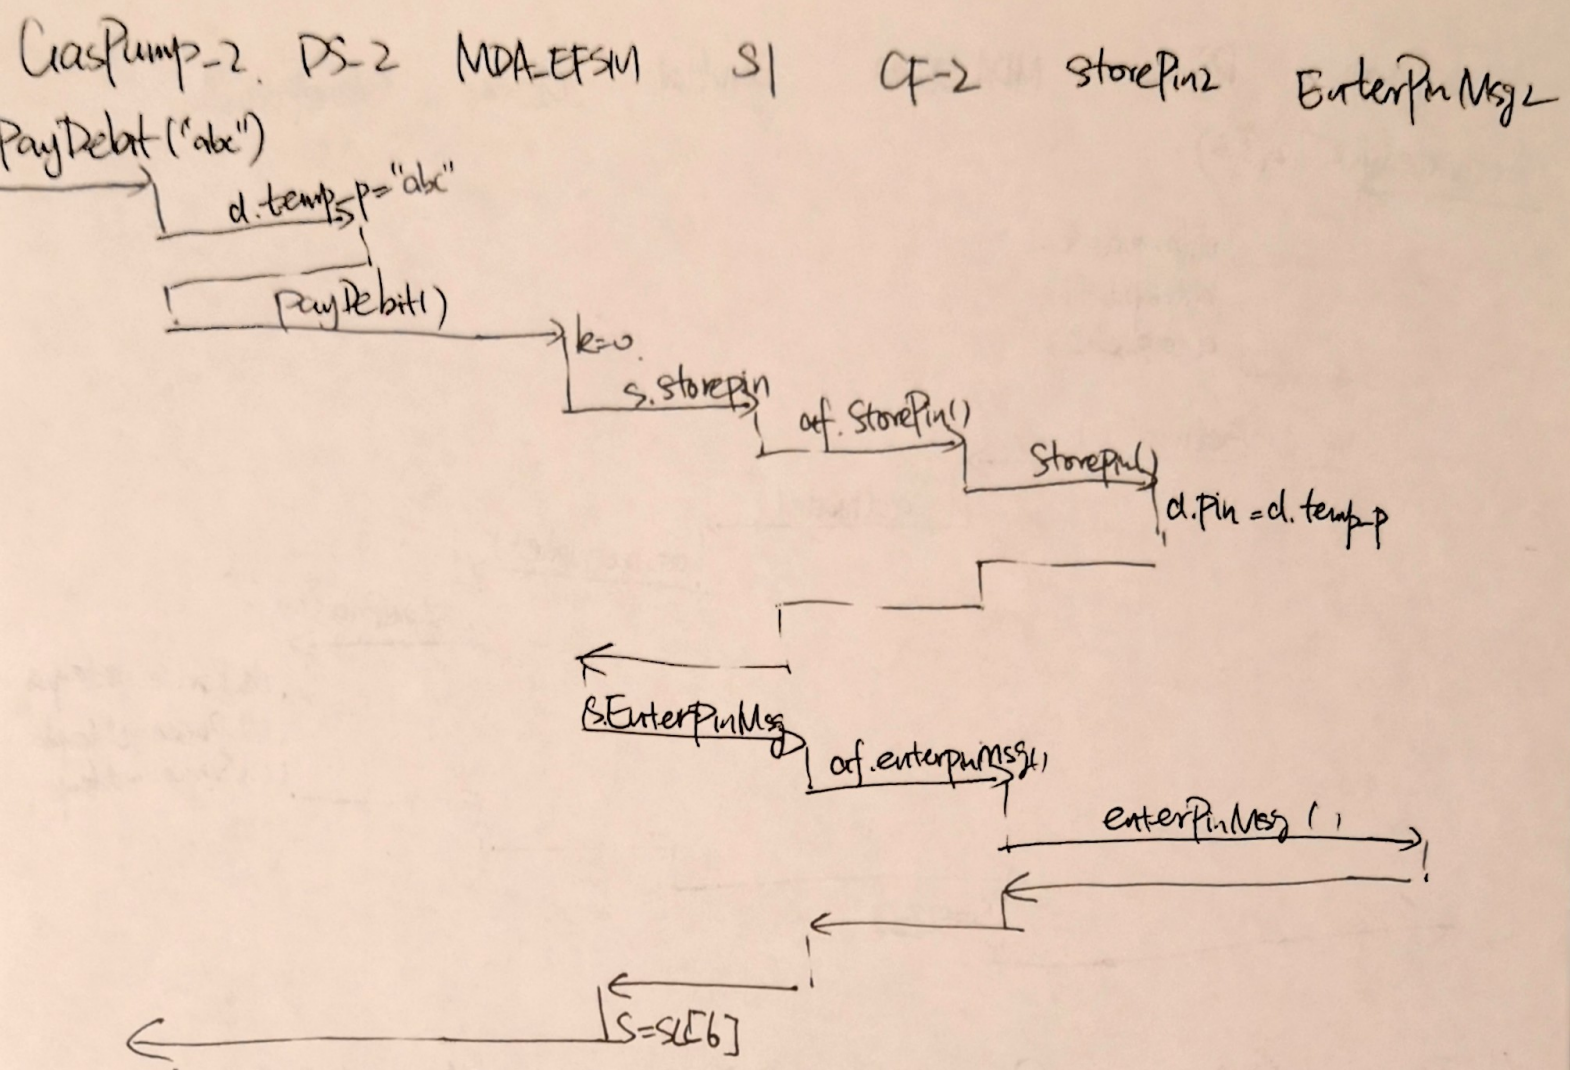 GasPump_2. DS-2 MDA_EFSM S1 CF-2 StorePin2 EnterPinMsg2
PayDebit("abc")
d.temp_p="abc"
payDebit()
k=0
s.storepin
af.StorePin()
Storepin()
d.pin=d.temp_p
s.EnterPinMsg
af.enterpinMsg()
enterPinMsg()
S=SL[6]